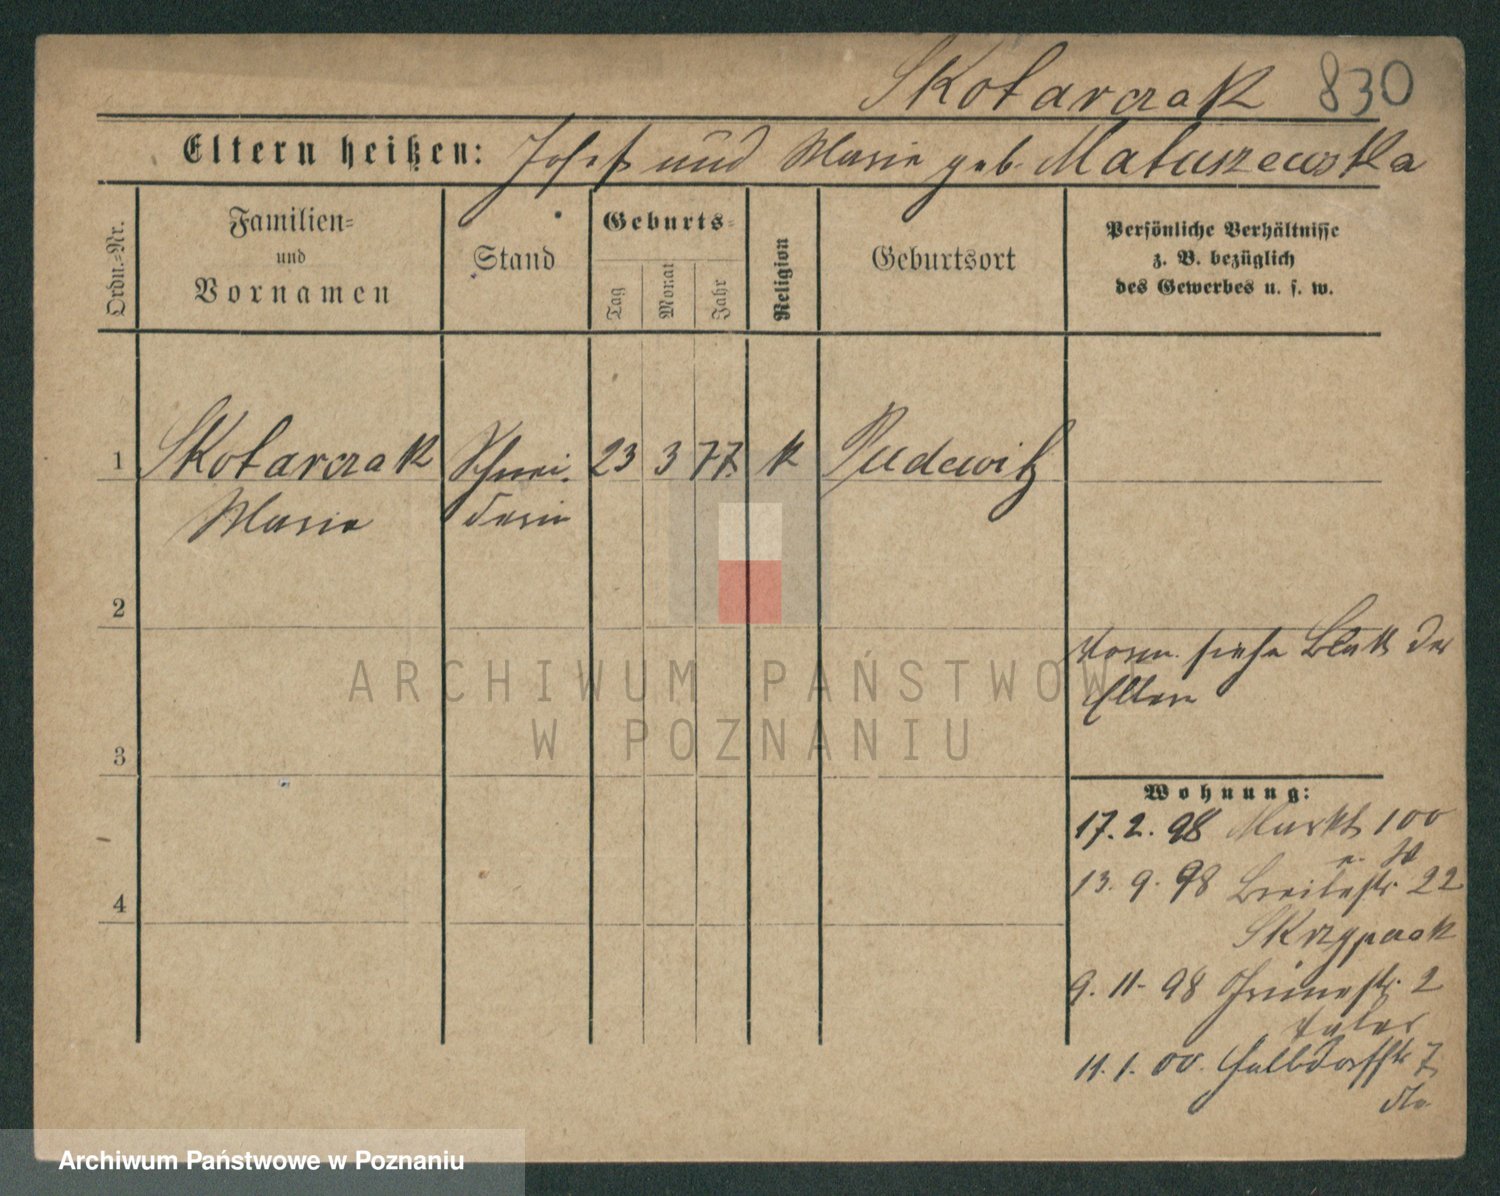 Skotarczak 830
Eltern heißen: Josef und Marie geb. Matuszewska
Ordn.-Nr.
Familien-
und
Vornamen
Stand
Geburts-
Tag
Monat
Jahr
Religion
Geburtsort
Persönliche Verhältnisse
z. B. bezüglich
des Gewerbes u. s. w.
1 Skotarczak Schnei- 23 3 77. k Pudewitz
Marie derin
2
Vorm. siehe Blatt der
Eltern
3
Wohnung:
17. 2. 98 Markt 100
13. 9. 98 Breitestr. 22
Skrzypczak
4
9. 11. 98 Grünestr. 2
Vater
11. 1. 00. Halbdorfstr 7
do
ARCHIWUM PAŃSTWOW
W POZNANIU
Archiwum Państwowe w Poznaniu